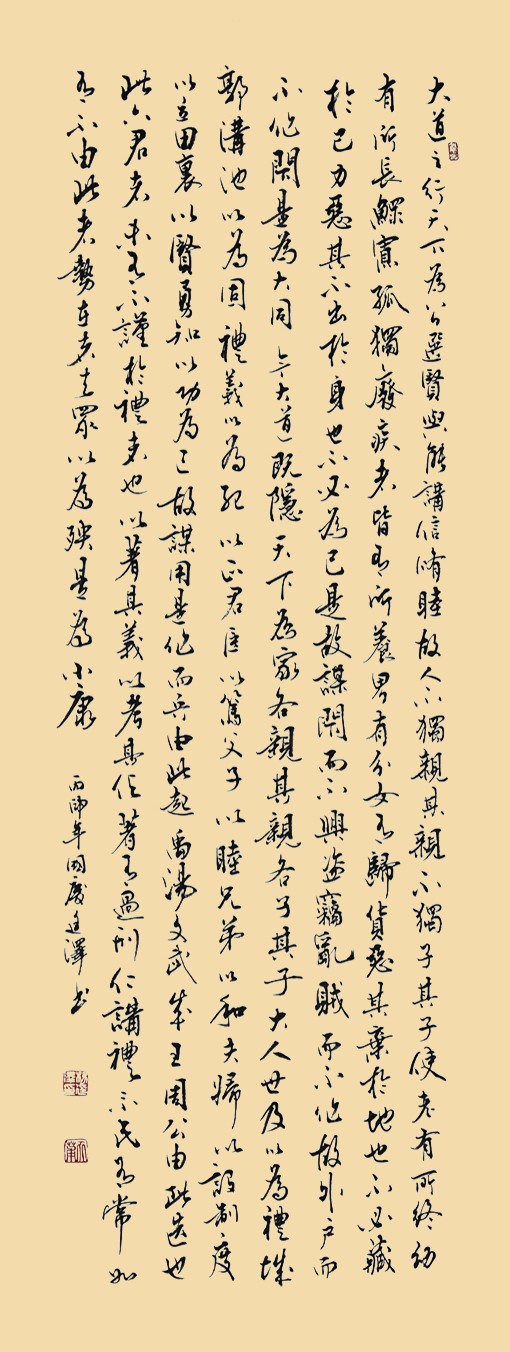 大道之行天下為公選賢與能講信脩睦故人不獨親其親不獨子其子使老有所終幼
有所長鰥寡孤獨廢疾者皆有所養男有分女有歸貨惡其棄於地也不必藏
於己力惡其不出於身也不必為己是故謀閉而不興盜竊亂賊而不作故外戶而
不作閉是為大同今大道既隱天下為家各親其親各子其子大人世及以為禮城
郭溝池以為固禮義以為紀以正君臣以篤父子以睦兄弟以和夫婦以設制度
以立田裏以賢勇知以功為己故謀用是作而兵由此起禹湯文武成王周公由此選也
此六君者未有不謹於禮者也以著其義以考其信著有過刑仁講禮示民有常如
有不由此者勢在者去眾以為殃是為小康
丙戌年國慶廷澤書